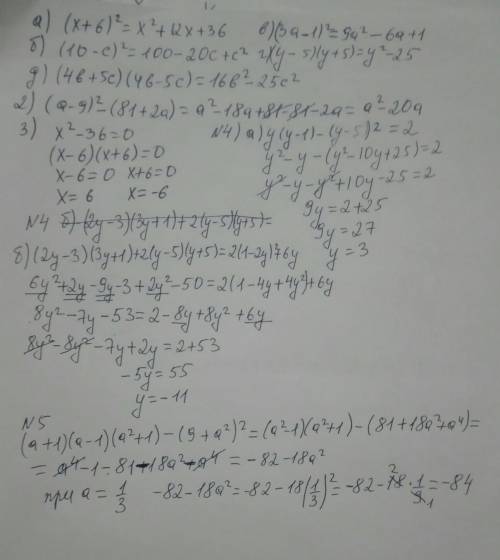 а) (x+6)² = x²+12x+36   в) (3a-1)² = 9a²-6a+1
б) (10-c)² = 100-20c+c²   г) (y-5)(y+5) = y²-25
д) (4b+5c)(4b-5c) = 16b²-25c²
2) (a-9)²-(81+2a) = a²-18a+81-81-2a = a²-20a
3) x²-36=0
(x-6)(x+6)=0
x-6=0   x+6=0
x=6   x=-6
№4) а) y(y-1)-(y-5)²=2
y²-y-(y²-10y+25)=2
y²-y-y²+10y-25=2
9y=2+25
9y=27
y=3
№4 б) (2y-3)(3y+1)+2(y-5)(y+5)=
б) (2y-3)(3y+1)+2(y-5)(y+5)=2(1-2y)²+6y
6y²+2y-9y-3+2y²-50=2(1-4y+4y²)+6y
8y²-7y-53=2-8y+8y²+6y
8y²-8y²-7y+2y=2+53
-5y=55
y=-11
№5
(a+1)(a-1)(a²+1)-(9+a²)²=(a²-1)(a²+1)-(81+18a²+a⁴)=
= a⁴-1-81-18a²-a⁴ = -82-18a²
при a = 1/3   -82-18a²=-82-18(1/3)²=-82-18·1/9=-84